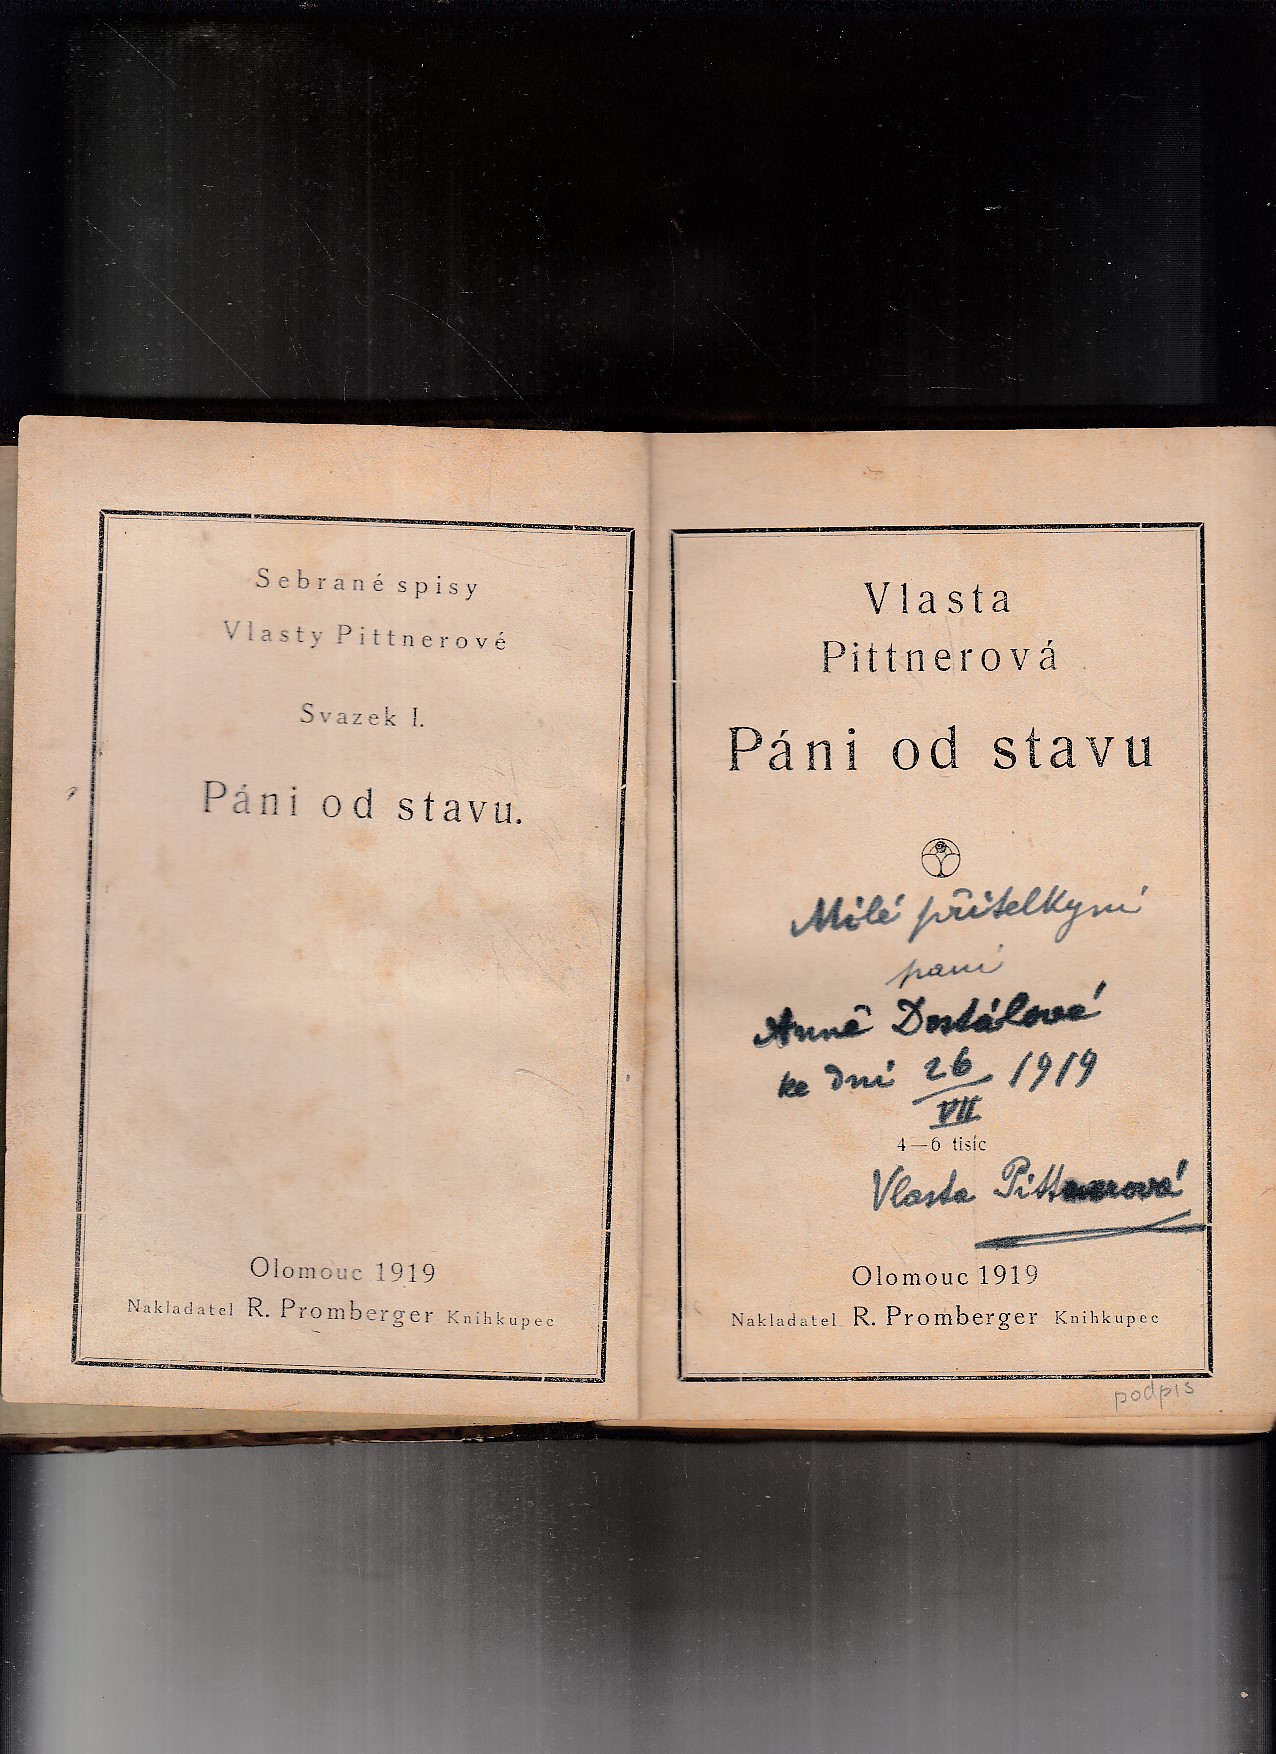 Sebrané spisy
Vlasty Pittnerové
Svazek I.
Páni od stavu.
Olomouc 1919
Nakladatel R. Promberger Knihkupec
Vlasta
Pittnerová
Páni od stavu
Milé přítelkyni
paní
Anně Dostálové
ke dni 26/VII 1919
4—6 tisíc
Vlasta Pittnerová
Olomouc 1919
Nakladatel R. Promberger Knihkupec
podpis